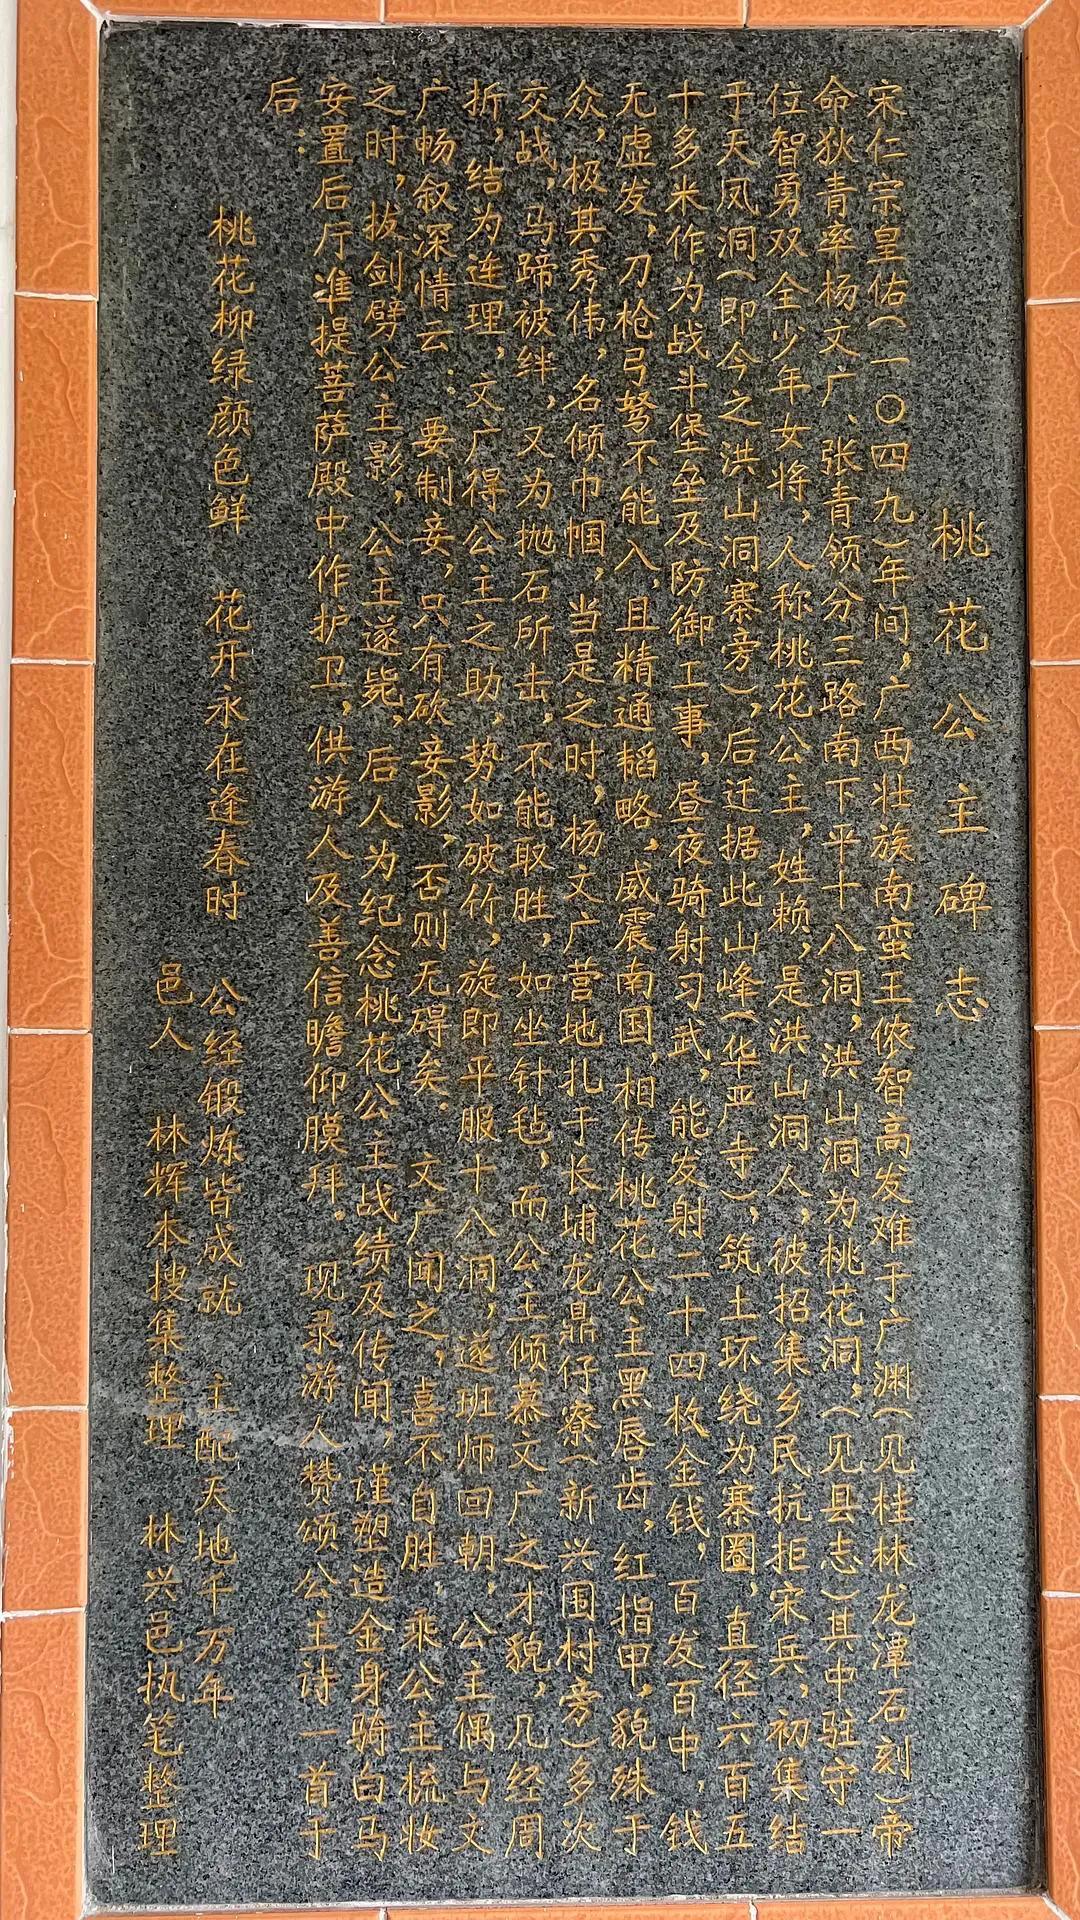 桃花公主碑志
宋仁宗皇佑(一〇四九)年间,广西壮族南蛮王侬智高发难于广渊(见桂林龙潭石刻)帝
命狄青率杨文广、张青领分三路南下平十八洞,洪山洞为桃花洞,(见县志)其中驻守一
位智勇双全少年女将,人称桃花公主,姓赖,是洪山洞人,彼招集乡民抗拒宋兵,初集结
于天凤洞(即今之洪山洞寨旁),后迁据此山峰(华严寺),筑土环绕为寨圈,直径六百五
十多米作为战斗堡垒及防御工事,昼夜骑射习武,能发射二十四枚金钱,百发百中,钱
无虚发,刀枪弓弩不能入,且精通韬略,威震南国,相传桃花公主黑唇齿,红指甲,貌殊于
众,极其秀伟,名倾巾帼,当是之时,杨文广营地扎于长埔龙鼎仔寮(新兴围村旁)多次
交战,马蹄被绊,又为抛石所击,不能取胜,如坐针毡,而公主倾慕文广之才貌,几经周
折,结为连理,文广得公主之助,势如破竹,旋即平服十八洞,遂班师回朝,公主偶与文
广畅叙深情云:要制妾,只有砍妾影,否则无碍矣.文广闻之,喜不自胜,乘公主梳妆
之时,拔剑劈公主影,公主遂毙,后人为纪念桃花公主战绩及传闻,谨塑造金身骑白马
安置后厅准提菩萨殿中作护卫,供游人及善信瞻仰膜拜。现录游人赞颂公主诗一首于
后:
桃花柳绿颜色鲜 花开永在逢春时 公经锻炼皆成就 主配天地千万年
邑人 林辉本搜集整理 林兴邑执笔整理